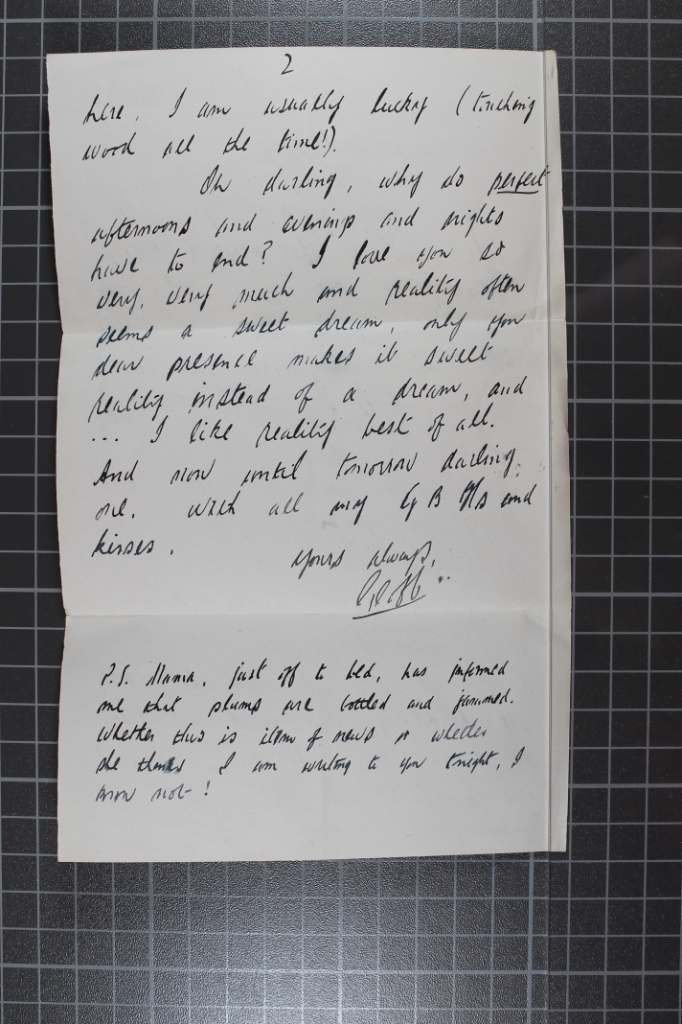 2
here. I am usually lucky (touching
wood all the time!).
Oh darling, why do perfect
afternoons and evenings and nights
have to end? I love you so
very, very much and reality often
seems a sweet dream, only you
dear presence makes it sweet
reality instead of a dream, and
... I like reality best of all.
And now until tomorrow darling
one. With all my G B Hs and
kisses.
Yours always,
P.S. Mama, just off to bed, has informed
me that plums are bottled and jammed.
Whether this is item of news or whether
she thinks I am writing to you tonight, I
know not!